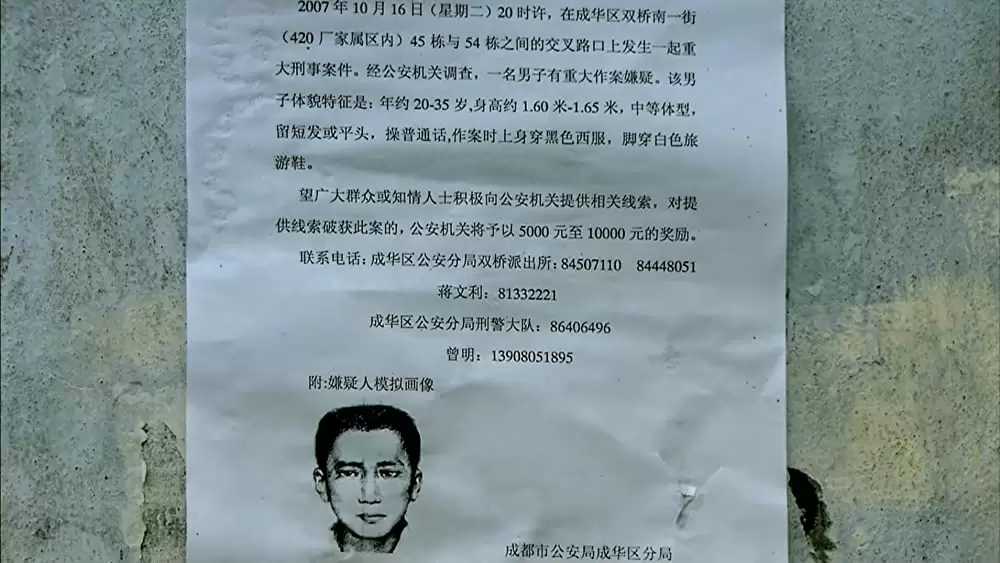 2007 年 10 月 16 日（星期二）20 时许，在成华区双桥南一街
（420 厂家属区内）45 栋与 54 栋之间的交叉路口上发生一起重
大刑事案件。经公安机关调查，一名男子有重大作案嫌疑。该男
子体貌特征是：年约 20-35 岁,身高约 1.60 米-1.65 米，中等体型，
留短发或平头，操普通话,作案时上身穿黑色西服，脚穿白色旅
游鞋。
望广大群众或知情人士积极向公安机关提供相关线索，对提
供线索破获此案的，公安机关将予以 5000 元至 10000 元的奖励。
联系电话：成华区公安分局双桥派出所：84507110 84448051
蒋文利：81332221
成华区公安分局刑警大队：86406496
曾明：13908051895
附:嫌疑人模拟画像
成都市公安局成华区分局